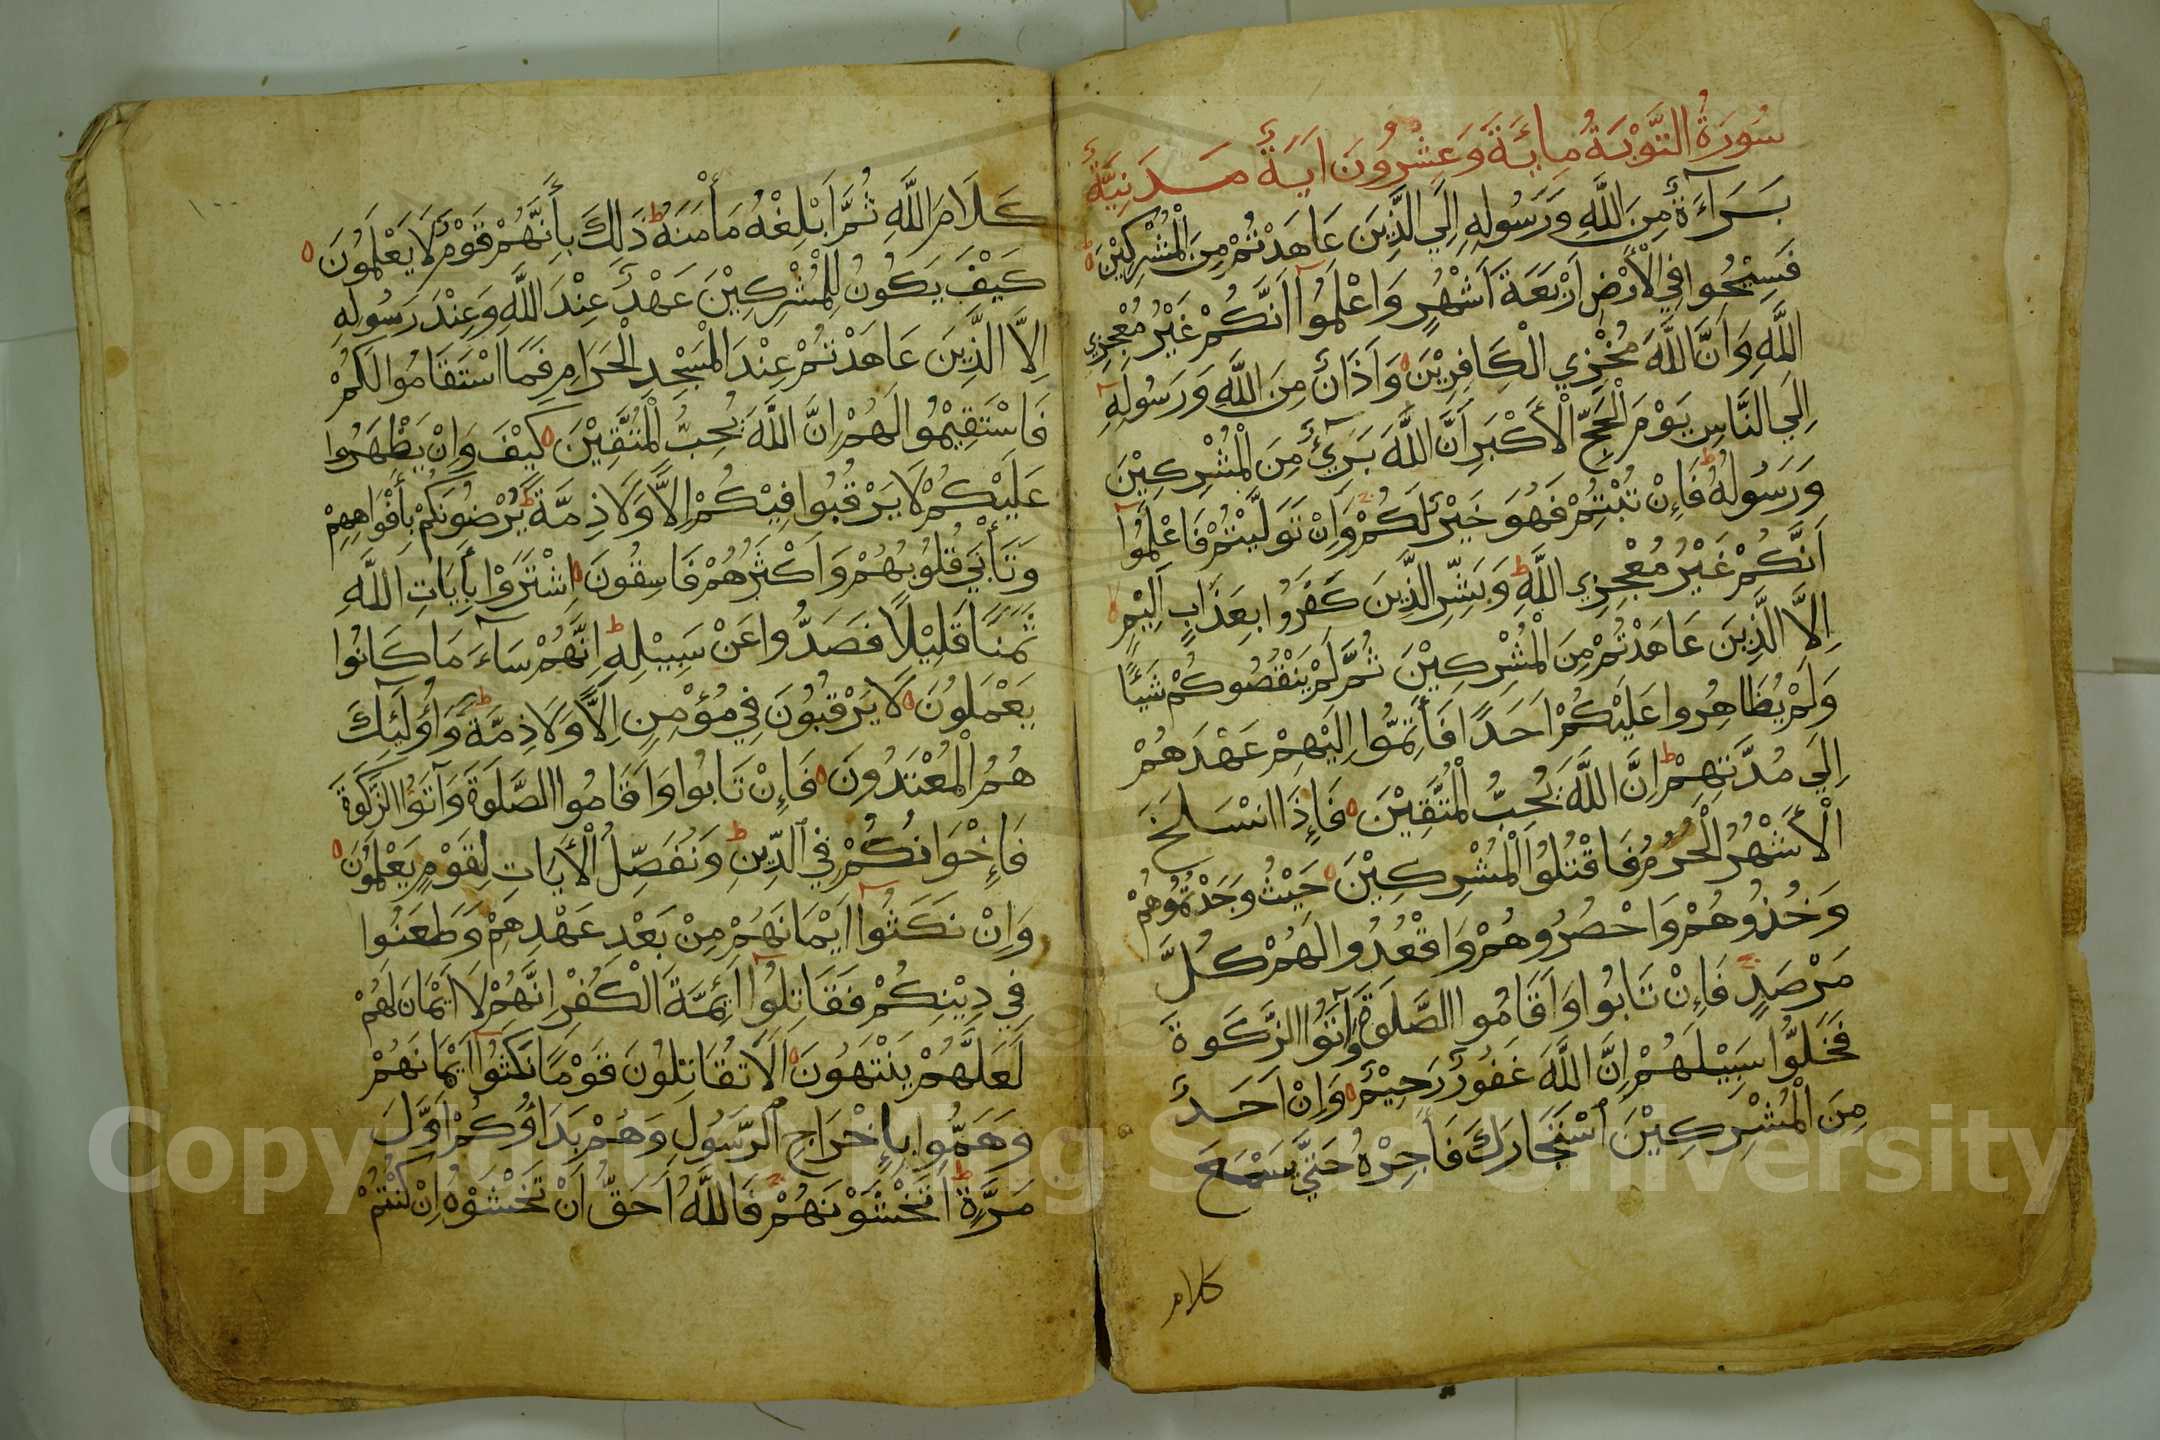 سُورَةُ التَّوْبَةُ مِائَةَ وَعِشْرُونَ اٰيَةً مَدَنِيَّةٌ
بَرَآءَةٌ مِنَ اللَّهِ وَرَسُولِهِ إِلَي الَّذِينَ عَاهَدْتُمْ مِنَ الْمُشْرِكِيْنَ
فَسِيْحُوا فِي الْأَرْضِ أَرْبَعَةَ أَشْهُرٍ وَاعْلَمُوا أَنَّكُمْ غَيْرُ مُعْجِزِي
اللَّهِ وَأَنَّ اللَّهَ مُخْزِي الْكَافِرِيْنَ وَأَذَانٌ مِنَ اللَّهِ وَرَسُولِهِ
إِلَي النَّاسِ يَوْمَ الْحَجِّ الْأَكْبَرِ أَنَّ اللَّهَ بَرِيٓءٌ مِنَ الْمُشْرِكِيْنَ
وَرَسُولُهُ ط فَإِنْ تُبْتُمْ فَهُوَ خَيْرٌ لَكُمْ وَإِنْ تَوَلَّيْتُمْ فَاعْلَمُوا
أَنَّكُمْ غَيْرُ مُعْجِزِي اللَّهِ ط وَبَشِّرِ الَّذِينَ كَفَرُوا بِعَذَابٍ أَلِيْمٍ
إِلَّا الَّذِينَ عَاهَدْتُمْ مِنَ الْمُشْرِكِيْنَ ثُمَّ لَمْ يَنْقُصُوكُمْ شَيْئًا
وَلَمْ يُظَاهِرُوا عَلَيْكُمْ أَحَدًا فَأَتِمُّوا إِلَيْهِمْ عَهْدَهُمْ
إِلَي مُدَّتِهِمْ ط إِنَّ اللَّهَ يُحِبُّ الْمُتَّقِيْنَ فَإِذَا انْسَلَخَ
الْأَشْهُرُ الْحُرُمُ فَاقْتُلُوا الْمُشْرِكِيْنَ حَيْثُ وَجَدْتُمُوهُمْ
وَخُذُوهُمْ وَاحْصُرُوهُمْ وَاقْعُدُوا لَهُمْ كُلَّ
مَرْصَدٍ فَإِنْ تَابُوا وَأَقَامُوا الصَّلَوةَ وَآتَوُا الزَّكَوةَ
فَخَلُّوا سَبِيْلَهُمْ إِنَّ اللَّهَ غَفُورٌ رَحِيْمٌ وَإِنْ أَحَدٌ
مِنَ الْمُشْرِكِيْنَ اسْتَجَارَكَ فَأَجِرْهُ حَتَّي يَسْمَعَ
كلام
كَلَامَ اللَّهِ ثُمَّ أَبْلِغْهُ مَأْمَنَهُ ط ذَلِكَ بِأَنَّهُمْ قَوْمٌ لَا يَعْلَمُونَ
كَيْفَ يَكُونُ لِلْمُشْرِكِيْنَ عَهْدٌ عِنْدَ اللَّهِ وَعِنْدَ رَسُولِهِ
إِلَّا الَّذِينَ عَاهَدْتُمْ عِنْدَ الْمَسْجِدِ الْحَرَامِ فَمَا اسْتَقَامُوا لَكُمْ
فَاسْتَقِيْمُوا لَهُمْ إِنَّ اللَّهَ يُحِبُّ الْمُتَّقِيْنَ كَيْفَ وَإِنْ يَظْهَرُوا
عَلَيْكُمْ لَا يَرْقُبُوا فِيْكُمْ إِلًّا وَلَا ذِمَّةً ط يُرْضُونَكُمْ بِأَفْوَاهِهِمْ
وَتَأْبَي قُلُوبُهُمْ وَأَكْثَرُهُمْ فَاسِقُونَ اِشْتَرَوْا بِأٰيَاتِ اللَّهِ
ثَمَنًا قَلِيْلًا فَصَدُّوا عَنْ سَبِيْلِهِ ط إِنَّهُمْ سَآءَ مَا كَانُوا
يَعْمَلُونَ لَا يَرْقُبُونَ فِي مُؤْمِنٍ إِلًّا وَلَا ذِمَّةً ط وَأُولَٓئِكَ
هُمُ الْمُعْتَدُونَ فَإِنْ تَابُوا وَأَقَامُوا الصَّلَوةَ وَآتَوُا الزَّكَوةَ
فَإِخْوَانُكُمْ فِي الدِّيْنِ ط وَنُفَصِّلُ الْأٰيَاتِ لِقَوْمٍ يَعْلَمُونَ
وَإِنْ نَكَثُوا أَيْمَانَهُمْ مِنْ بَعْدِ عَهْدِهِمْ وَطَعَنُوا
فِي دِيْنِكُمْ فَقَاتِلُوا أَئِمَّةَ الْكُفْرِ إِنَّهُمْ لَا أَيْمَانَ لَهُمْ
لَعَلَّهُمْ يَنْتَهُونَ أَلَا تُقَاتِلُونَ قَوْمًا نَكَثُوا أَيْمَانَهُمْ
وَهَمُّوا بِإِخْرَاجِ الرَّسُولِ وَهُمْ بَدَاُوكُمْ أَوَّلَ
مَرَّةٍ ط أَتَخْشَوْنَهُمْ فَاللَّهُ أَحَقُّ أَنْ تَخْشَوْهُ إِنْ كُنْتُمْ
Copyright © King Saud University